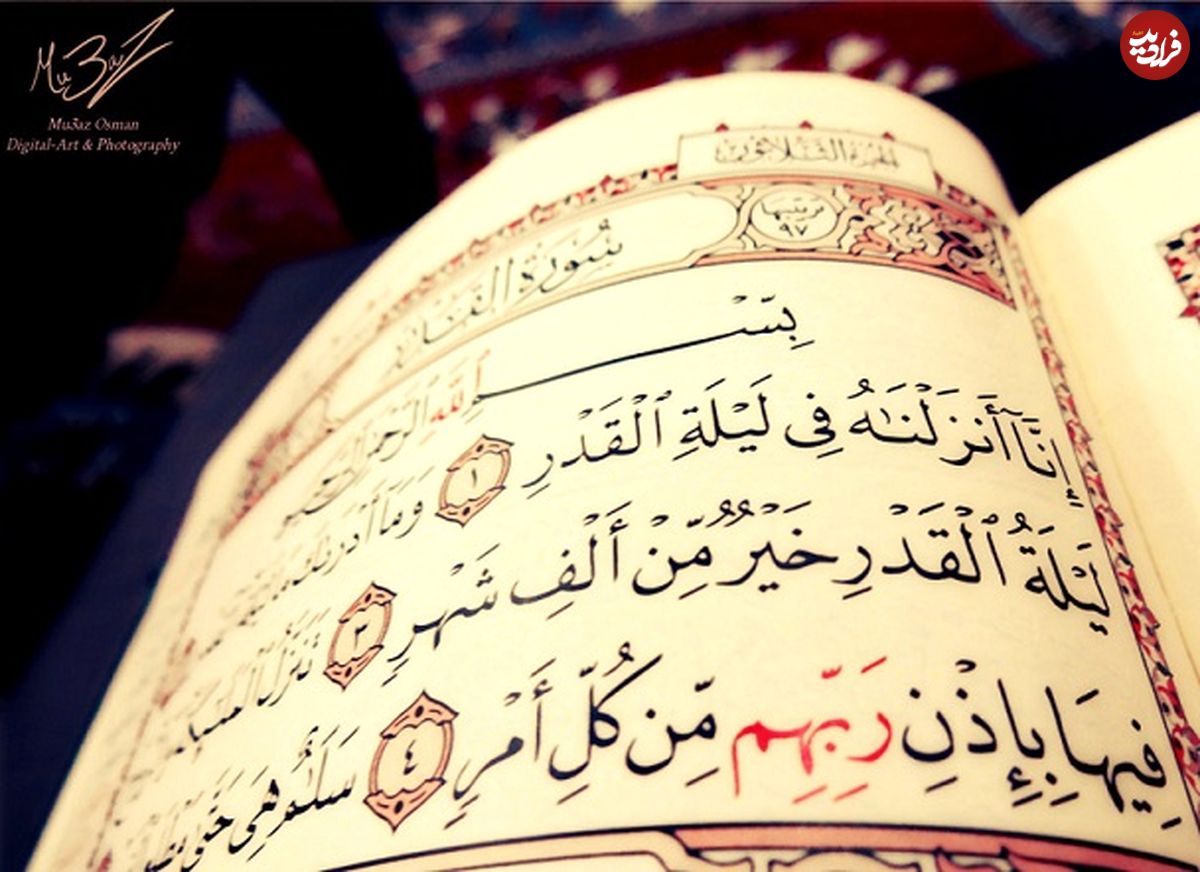 Mu3az
Mu3az Osman
Digital-Art & Photography
فرادید
الجزء الثلاثون
ترتيبها
٩٧
سُورَةُ القَدْرِ
بِسْمِ اللَّهِ الرَّحْمَٰنِ الرَّحِيمِ
إِنَّآ أَنزَلْنَٰهُ فِى لَيْلَةِ ٱلْقَدْرِ ١ وَمَآ أَدْرَىٰكَ
لَيْلَةُ ٱلْقَدْرِ خَيْرٌ مِّنْ أَلْفِ شَهْرٍ ٣ تَنَزَّلُ
فِيهَا بِإِذْنِ رَبِّهِم مِّن كُلِّ أَمْرٍ ٤ سَلَٰمٌ هِىَ حَتَّىٰ